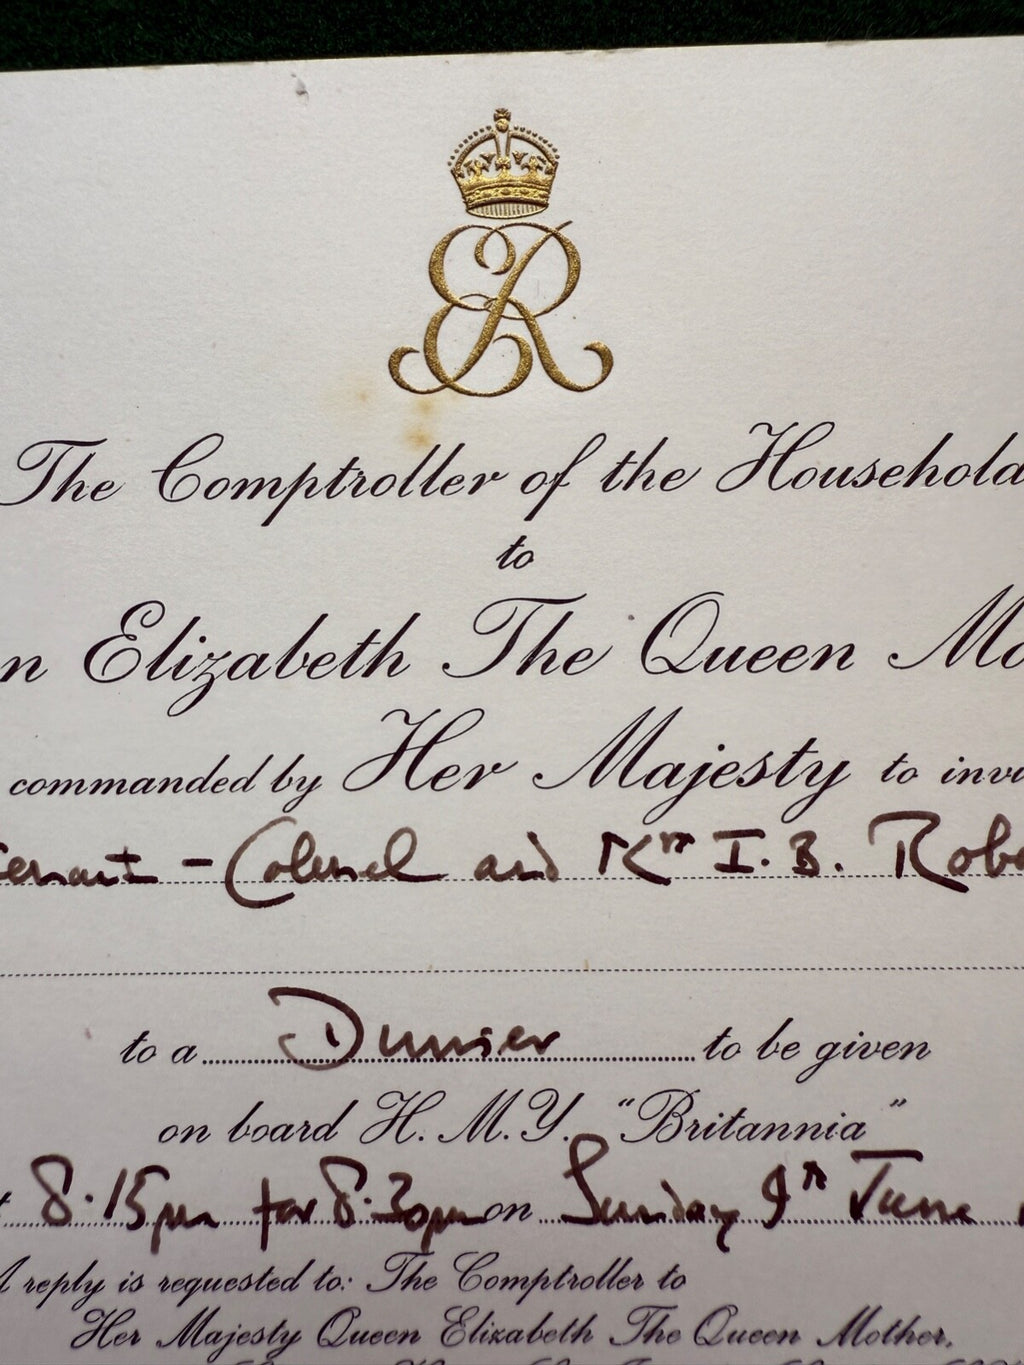 ER
The Comptroller of the Household
to
n Elizabeth The Queen Mo
commanded by Her Majesty to invi
tenant - Colonel and Mrs I. B. Robe
to a Dinner to be given
on board H. M. Y. "Britannia"
8.15pm for 8.30pm on Sunday 9th June
A reply is requested to: The Comptroller to
Her Majesty Queen Elizabeth The Queen Mother,